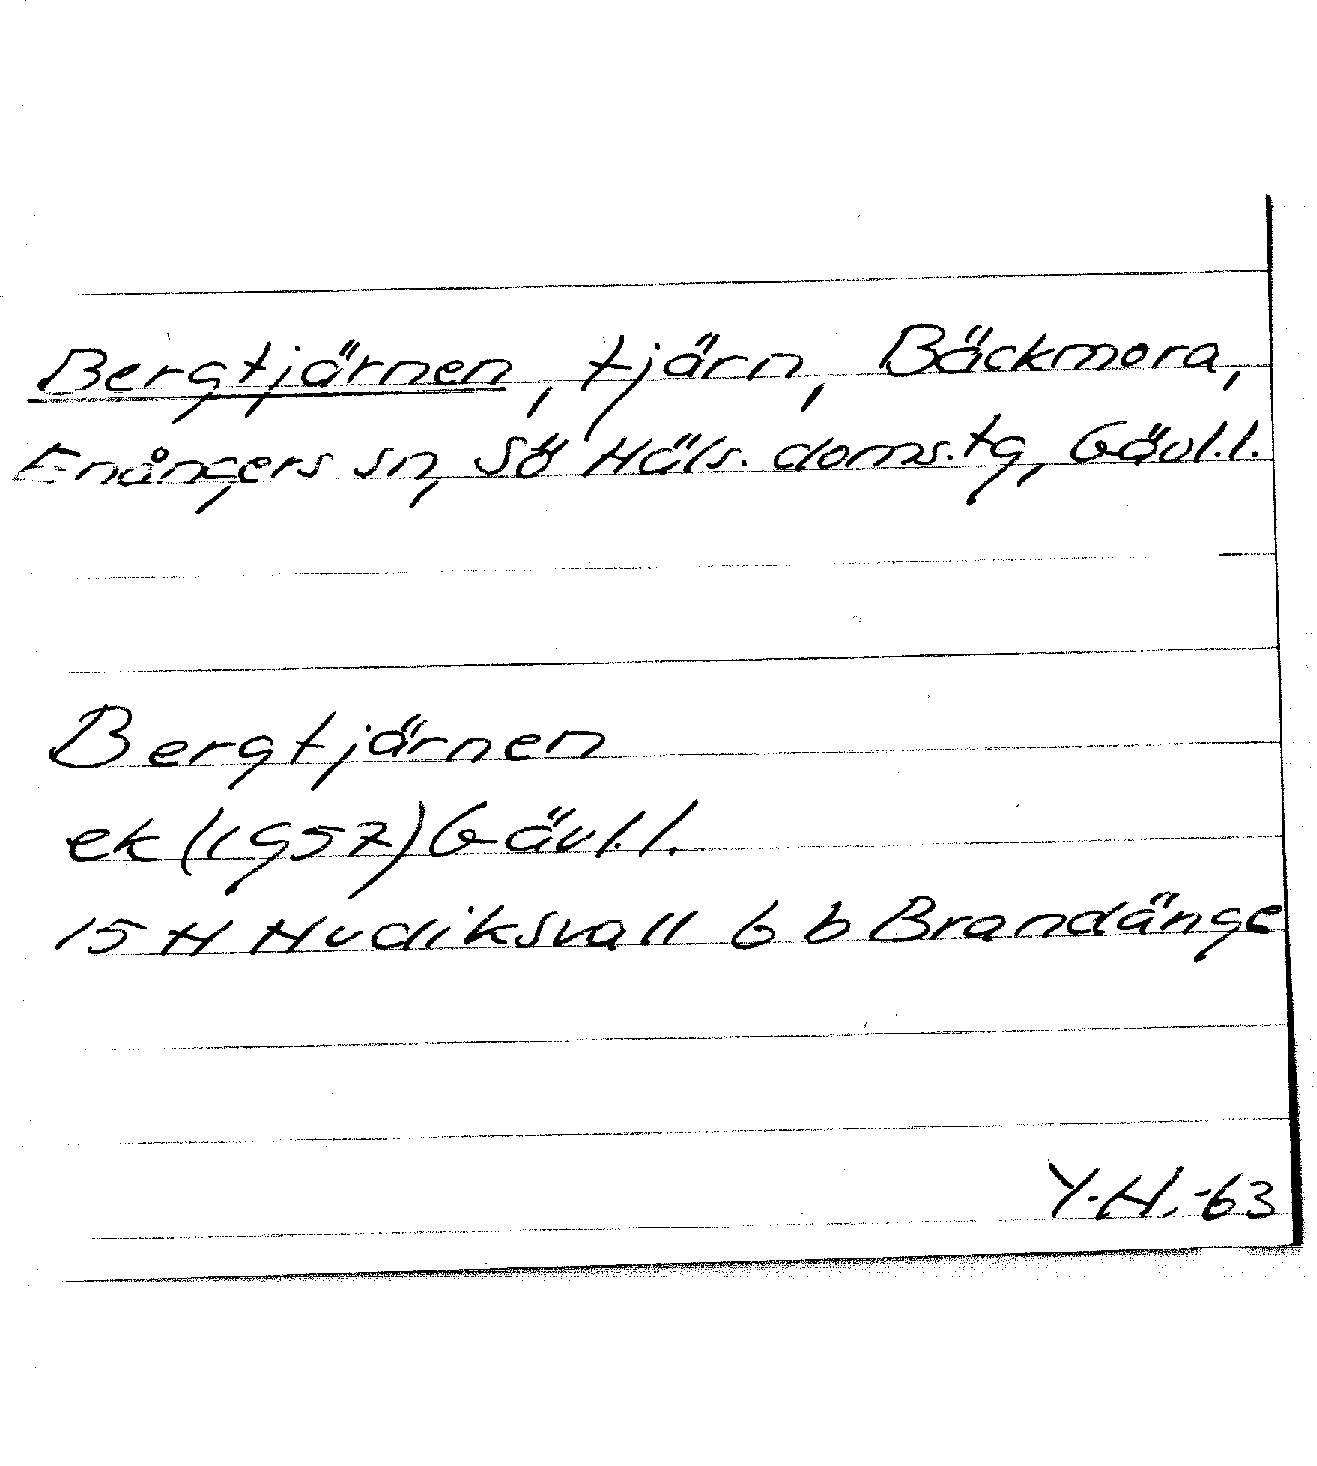 Bergtjärnen, tjärn, Bäckmora,
Enångers sn, Sö Häls. doms.tg, Gävl.l.
Bergtjärnen
ek (1957) Gävl.l.
15 H Hudiksvall 6 b Brandänge
Y.H.-63